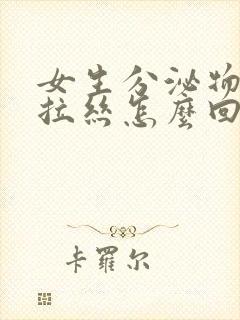 女生分泌物
拉丝怎麼回
卡羅尔